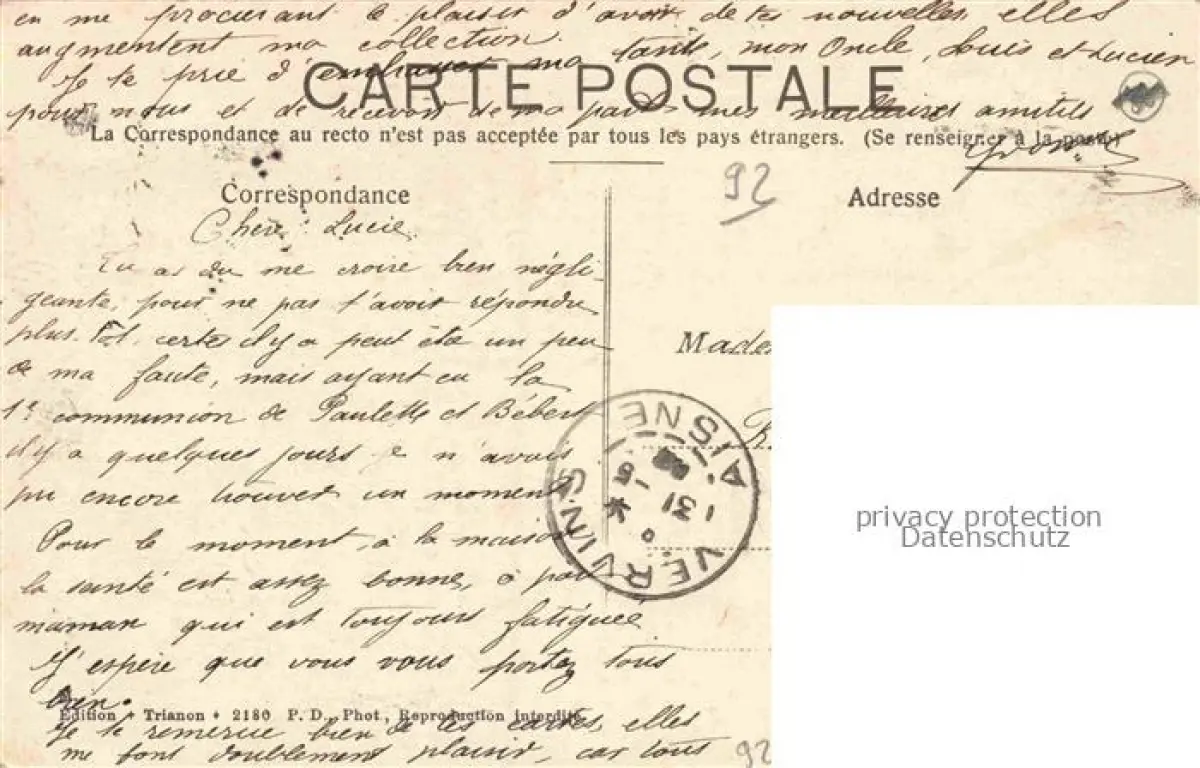 en me procurant le plaisir d'avoir de tes nouvelles, elles
augmentent ma collection.
Je te prie d'embrasser ma tante, mon Oncle, Louis et Lucien
CARTE POSTALE
pour nous et de recevoir de ma part mes meilleures amitiés
La Correspondance au recto n'est pas acceptée par tous les pays étrangers. (Se renseigner à la poste)
Yvonne
92
Correspondance
Adresse
Chère Lucie
Tu as du me croire bien négli-
geante, pour ne pas t'avoir répondu
plus tôt, certes il y a peut être un peu
de ma faute, mais ayant eu la
1re communion de Paulette et Bébert
il y a quelques jours je n'avais
pu encore trouver un moment
Pour le moment, à la maison
la santé est assez bonne, à part
maman qui est toujours fatiguée
J'espère que vous vous portez tous
bien.
Edition • Trianon • 2180 P. D., Phot., Reproduction interdite
Je te remercie bien de tes cartes, elles
me font doublement plaisir, car tous
Made
VERVINS AISNE
31 - 5
privacy protection
Datenschutz
92